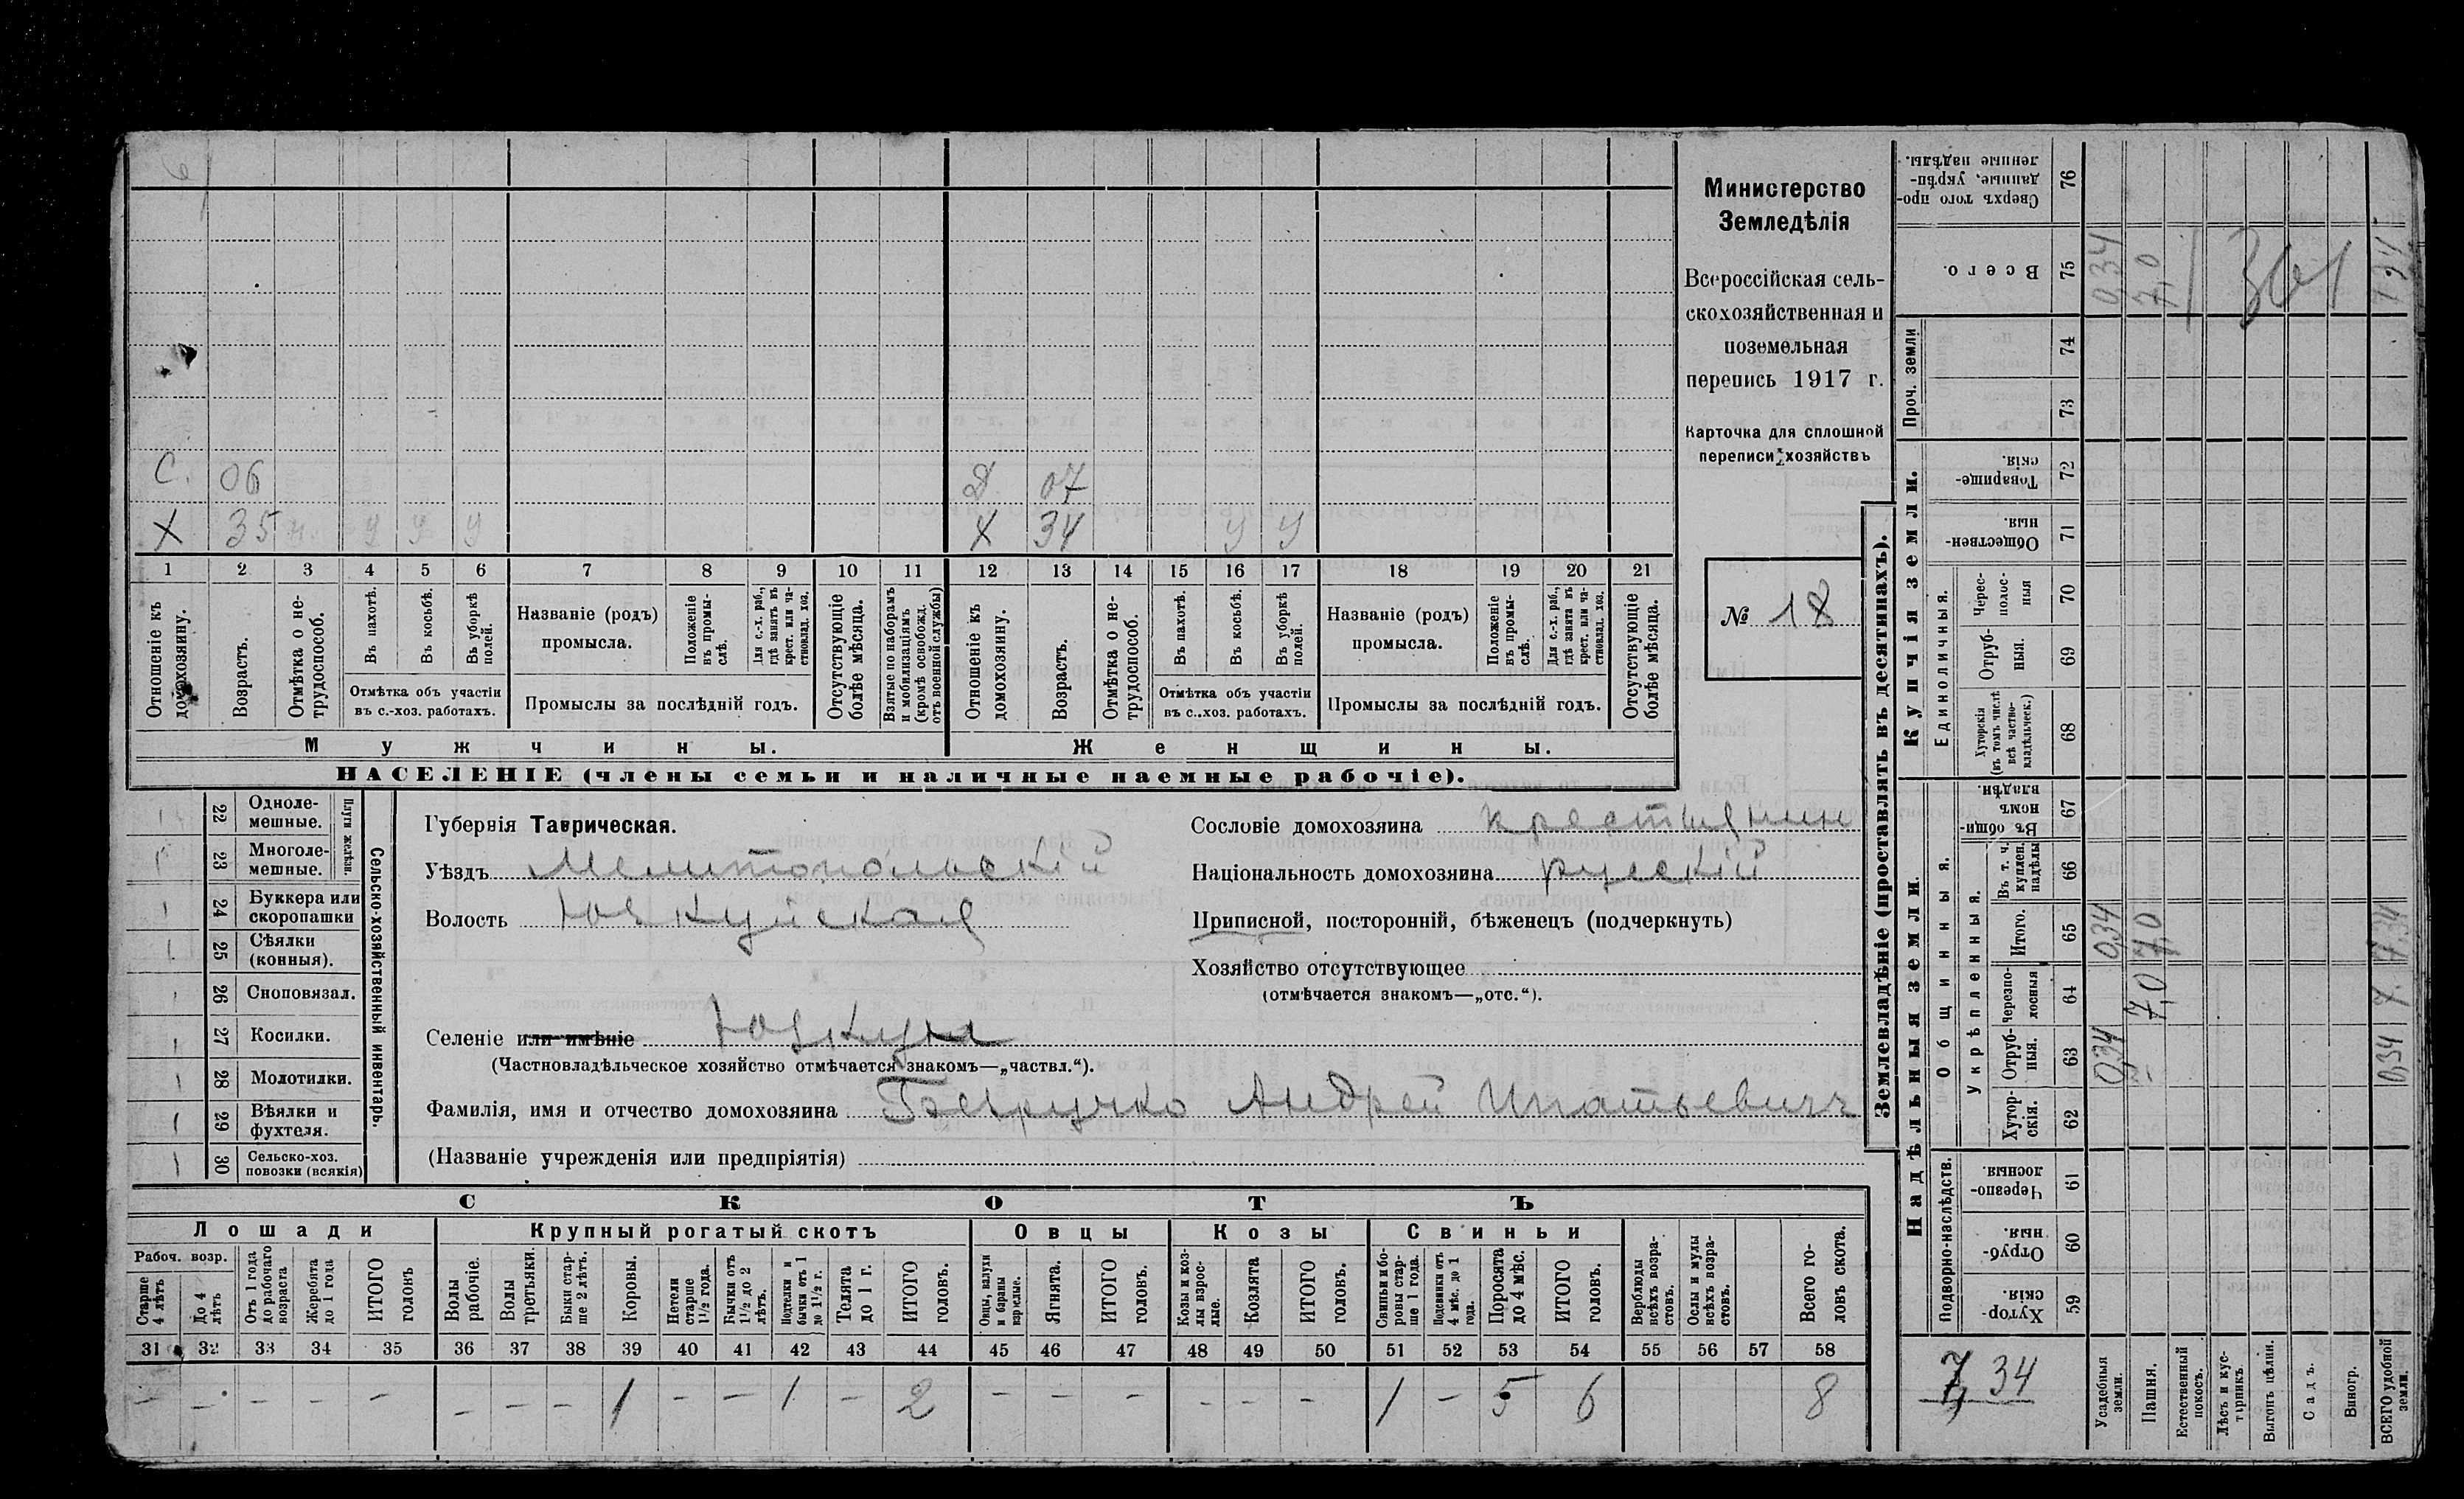 Министерство
Земледѣлія
Всероссійская сель-
скохозяйственная и
поземельная
перепись 1917 г.
Карточка для сплошной
переписи хозяйствъ
№ 18
С. 06 Д. 07
Х 35 У У У Х 34 У У
1 2 3 4 5 6 7 8 9 10 11 12 13 14 15 16 17 18 19 20 21
Отношеніе къ домохозяину.
Возрастъ.
Отмѣтка о не-трудоспособ.
Въ пахотѣ.
Въ косьбѣ.
Въ уборкѣ полей.
Отмѣтка объ участіи
въ с.-хоз. работахъ.
Названіе (родъ)
промысла.
Положеніе въ промы-слѣ.
Для с.-х. раб., гдѣ занятъ въ крест. или ча-стновлад. хоз.
Промыслы за послѣдній годъ.
Отсутствующіе болѣе мѣсяца.
Взятые по наборамъ и мобилизаціямъ (кромѣ освобожд. отъ военной службы)
Отношеніе къ домохозяину.
Возрастъ.
Отмѣтка о не-трудоспособ.
Въ пахотѣ.
Въ косьбѣ.
Въ уборкѣ полей.
Отмѣтка объ участіи
въ с.-хоз. работахъ.
Названіе (родъ)
промысла.
Положеніе въ промы-слѣ.
Для с.-х. раб., гдѣ занята въ крест. или ча-стновлад. хоз.
Промыслы за послѣдній годъ.
Отсутствующіе болѣе мѣсяца.
Мужчины. Женщины.
НАСЕЛЕНІЕ (члены семьи и наличные наемные рабочіе).
22 Одноле-мешные.
23 Многоле-мешные.
Плуги желѣзн.
24 Буккера или скоропашки
25 Сѣялки (конныя).
26 Сноповязал.
27 Косилки.
28 Молотилки.
29 Вѣялки и фухтеля.
30 Сельско-хоз. повозки (всякія)
Сельско-хозяйственный инвентарь.
Губернія Таврическая.
Уѣздъ Мелитопольскій
Волость Юзкуйская
Селеніе или имѣніе Юзкуи
(Частновладѣльческое хозяйство отмѣчается знакомъ—„частвл.“).
Фамилія, имя и отчество домохозяина Безручко Андрей Игнатьевичъ
(Названіе учрежденія или предпріятія)
Сословіе домохозяина крестьянин
Національность домохозяина русскій
Приписной, посторонній, бѣженецъ (подчеркнуть)
Хозяйство отсутствующее
(отмѣчается знакомъ—„отс.“).
СКОТЪ
Лошади Крупный рогатый скотъ Овцы Козы Свиньи
Рабоч. возр.
Старше 4 лѣтъ
До 4 лѣтъ
Отъ 1 года до рабочаго возраста
Жеребята до 1 года
ИТОГО головъ
Волы рабочіе.
Волы третьяки.
Быки стар-ше 2 лѣтъ.
Коровы.
Нетели старше 1½ года.
Бычки отъ 1½ до 2 лѣтъ.
Подтелки и бычки отъ 1 до 1½ г.
Телята до 1 г.
ИТОГО головъ.
Овцы, валухи и бараны взрослые.
Ягнята.
ИТОГО головъ.
Козы и коз-лы взрос-лые.
Козлята
ИТОГО головъ.
Свиньи и бо-ровы стар-ше 1 года.
Подсвинки отъ 4 мѣс. до 1 года.
Поросята до 4 мѣс.
ИТОГО головъ.
Верблюды всѣхъ возра-стовъ.
Ослы и мулы всѣхъ возра-стовъ.
Всего го-ловъ скота.
31 32 33 34 35 36 37 38 39 40 41 42 43 44 45 46 47 48 49 50 51 52 53 54 55 56 57 58
– – – – – – – – 1 – – 1 – 2 – – – – – – 1 – 5 6 8
Землевладѣніе (проставлять въ десятинахъ).
Надѣльныя земли. Купчія земли. Проч. земли
Подворно-наслѣдств.
Общинныя.
Укрѣпленныя.
Единоличныя.
Хутор-скія. 59
Отруб-ныя. 60
Черезпо-лосныя. 61
Хутор-скія. 62
Отруб-ныя. 63
Черезпо-лосныя 64
Итого. 65
Въ т. ч. куплен. надѣлы 66
Въ общи-номъ владѣн. 67
Хуторскія (въ томъ числѣ всѣ частно-владѣльческ.) 68
Отруб-ныя. 69
Черес-полос-ныя 70
Обществен-ныя. 71
Товарище-скія. 72
73
74
Всего. 75
Сверхъ того про-данные, укрѣп-ленные надѣлы. 76
7,34
Усадебныя земли. 0,34 0,34 0,34
Пашня. 7,0 7,0 7,0
Естественный покосъ.
Лѣсъ и кус-тарникъ.
Выгонъ цѣлин.
Садъ.
Виногр.
ВСЕГО удобной земли. 0,34 7. 7,34 7,34
361